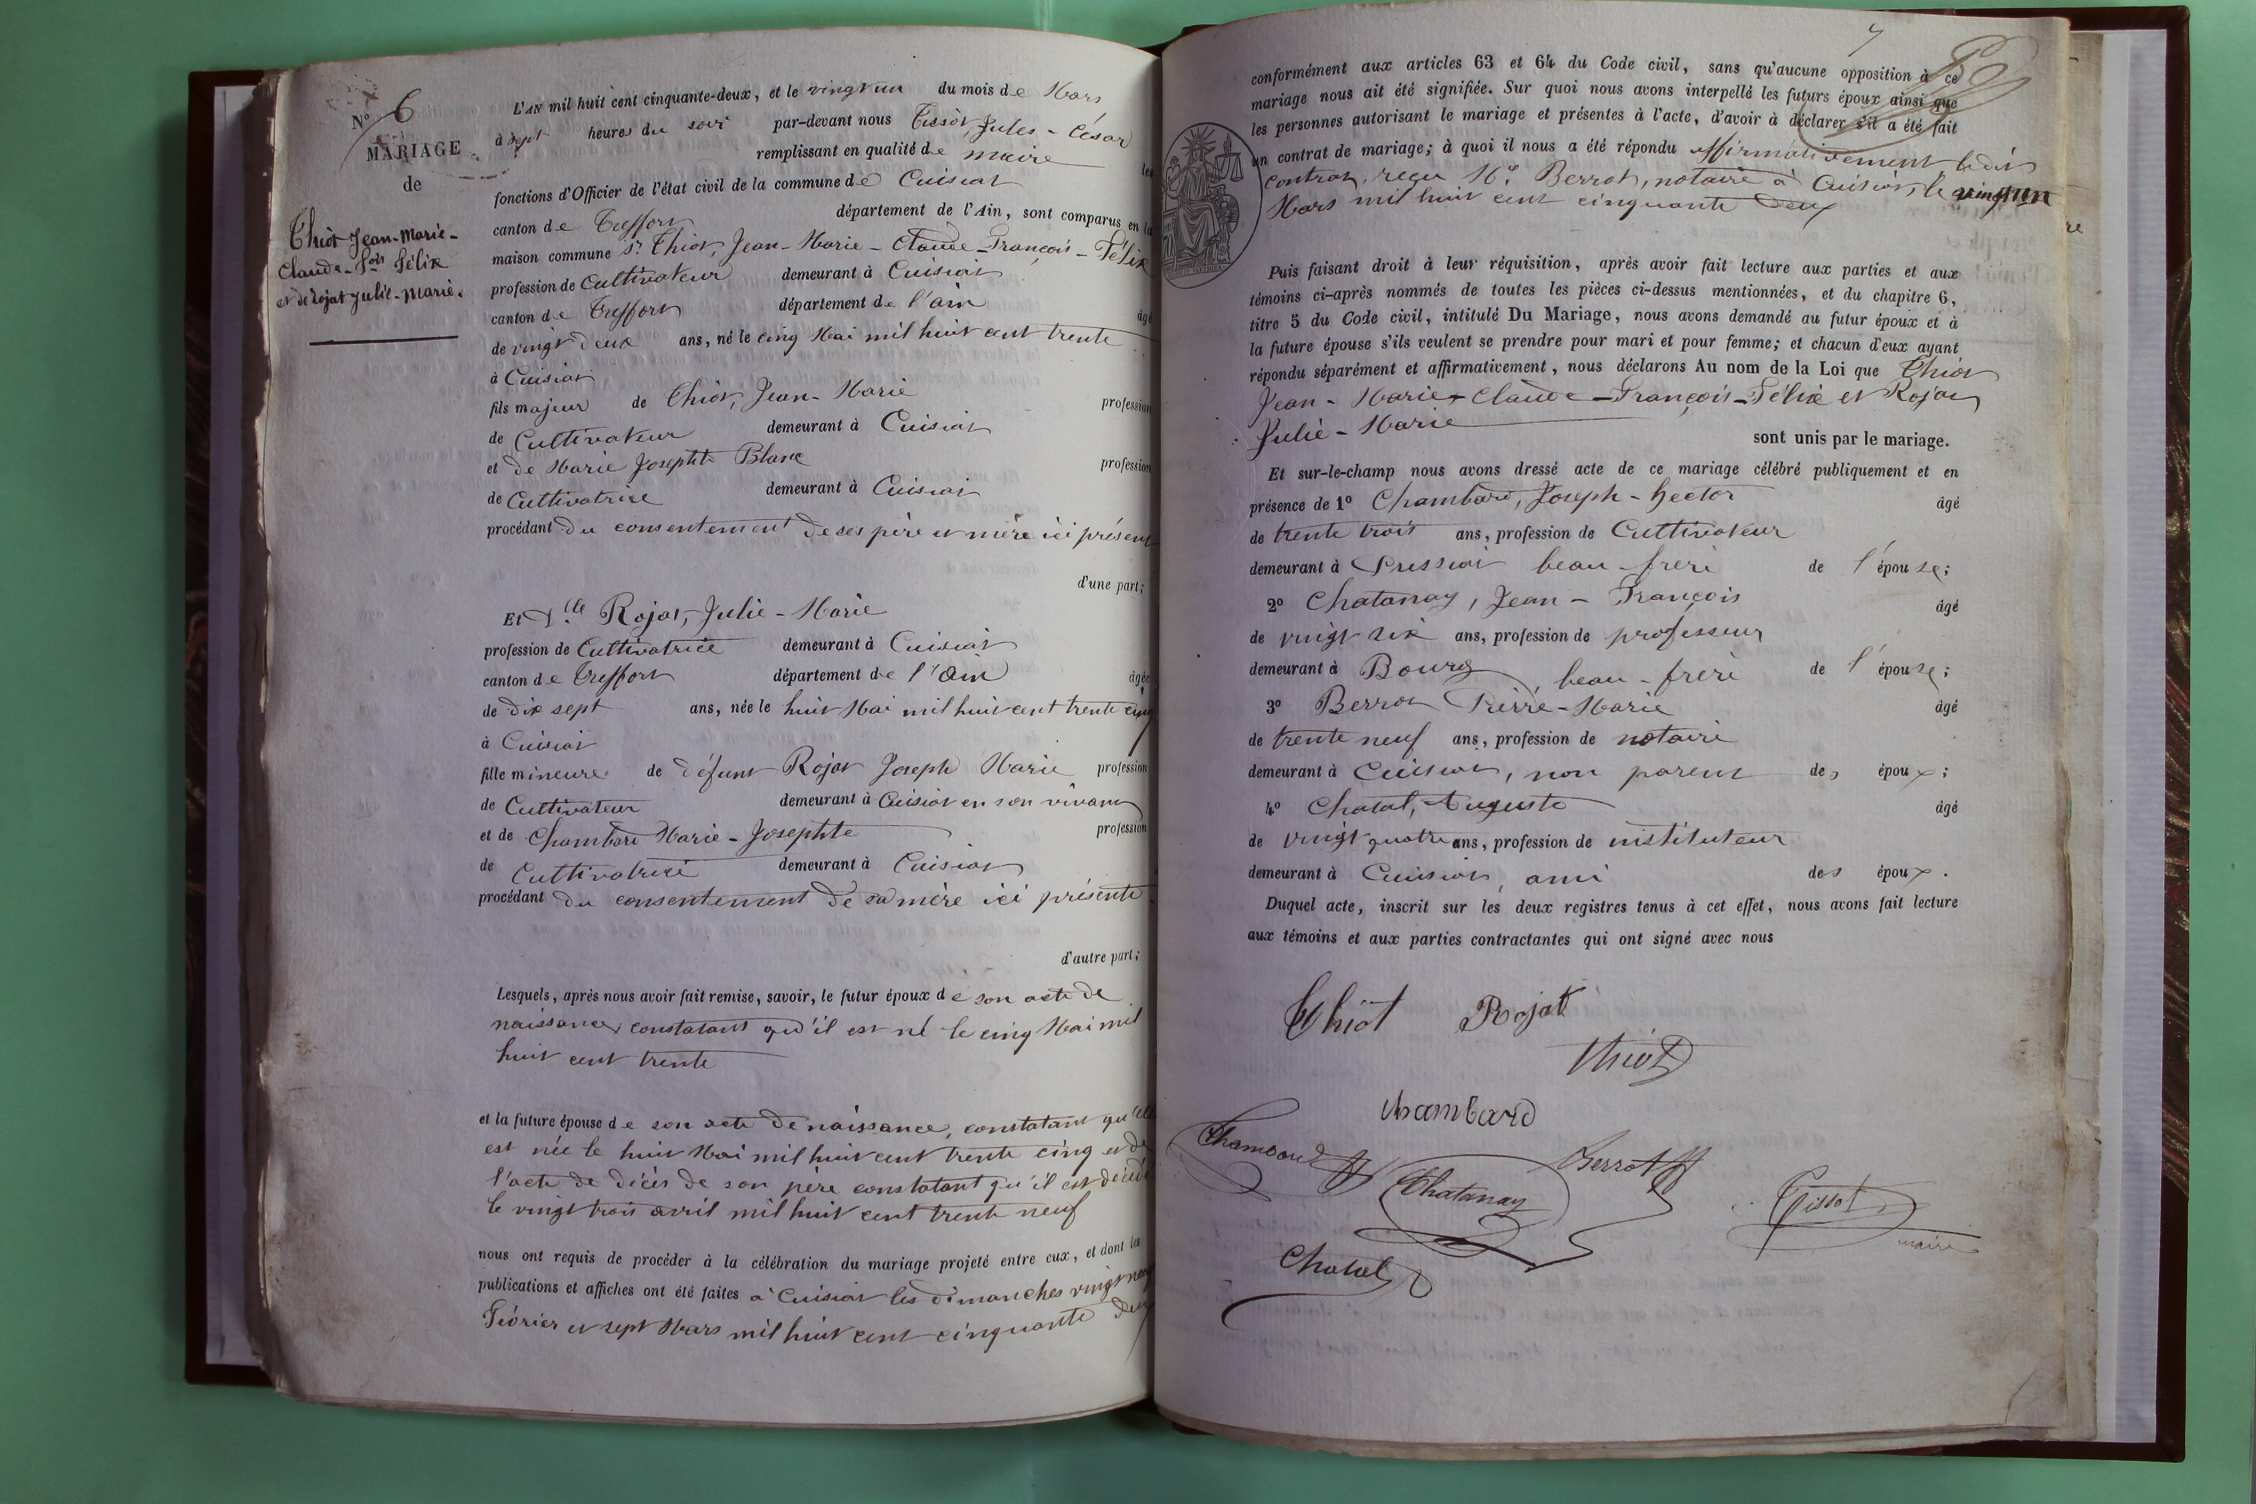 N° 6
MARIAGE
de
Thiot Jean-Marie-
Claude-Fois Félix
et de Rojat Julie-Marie.
L'AN mil huit cent cinquante-deux, et le vingt un du mois de Mars
à sept heures du soir par-devant nous Tissot Jules-César
remplissant en qualité de maire les
fonctions d'Officier de l'état civil de la commune de Cuisiat
canton de Treffort département de l'Ain, sont comparus en la
maison commune sr Thiot, Jean-Marie-Claude-François-Félix
profession de Cultivateur demeurant à Cuisiat
canton de Treffort département de l'ain âgé
de vingt deux ans, né le cinq Mai mil huit cent trente
à Cuisiat
fils majeur de Thiot, Jean-Marie profession
de Cultivateur demeurant à Cuisiat
et de Marie Josephte Blanc profession
de Cultivatrice demeurant à Cuisiat
procédant du consentement de ses père et mère ici présent
d'une part;
Et Dlle Rojat, Julie-Marie
profession de Cultivatrice demeurant à Cuisiat
canton de Treffort département de l'ain âgée
de dix sept ans, née le huit Mai mil huit cent trente cinq
à Cuisiat
fille mineure de défunt Rojat Joseph Marie profession
de Cultivateur demeurant à Cuisiat en son vivant
et de Chambard Marie-Josephte profession
de Cultivatrice demeurant à Cuisiat
procédant du consentement de sa mère ici présente
d'autre part;
Lesquels, après nous avoir fait remise, savoir, le futur époux de son acte de
naissance, constatant qu'il est né le cinq Mai mil
huit cent trente
et la future épouse de son acte de naissance, constatant qu'elle
est née le huit Mai mil huit cent trente cinq et de
l'acte de décès de son père constatant qu'il est décédé
le vingt trois avril mil huit cent trente neuf
nous ont requis de procéder à la célébration du mariage projeté entre eux, et dont les
publications et affiches ont été faites à Cuisiat les dimanches vingt neuf
Février et sept Mars mil huit cent cinquante deux
7
conformément aux articles 63 et 64 du Code civil, sans qu'aucune opposition à ce
mariage nous ait été signifiée. Sur quoi nous avons interpellé les futurs époux ainsi que
les personnes autorisant le mariage et présentes à l'acte, d'avoir à déclarer s'il a été fait
un contrat de mariage; à quoi il nous a été répondu affirmativement ledit
contrat, reçu Me Berrot, notaire à Cuisiat, le vingt un
Mars mil huit cent cinquante deux
Puis faisant droit à leur réquisition, après avoir fait lecture aux parties et aux
témoins ci-après nommés de toutes les pièces ci-dessus mentionnées, et du chapitre 6,
titre 5 du Code civil, intitulé Du Mariage, nous avons demandé au futur époux et à
la future épouse s'ils veulent se prendre pour mari et pour femme; et chacun d'eux ayant
répondu séparément et affirmativement, nous déclarons Au nom de la Loi que Thiot
Jean-Marie-Claude-François-Félix et Rojat
Julie-Marie
sont unis par le mariage.
Et sur-le-champ nous avons dressé acte de ce mariage célébré publiquement et en
présence de 1° Chambard, Joseph-hector âgé
de trente trois ans, profession de Cultivateur
demeurant à Pressiat beau-frère de l'épouse;
2° Chatanay, Jean-François âgé
de vingt six ans, profession de professeur
demeurant à Bourg beau-frère de l'épouse;
3° Berrot Pierre-Marie âgé
de trente neuf ans, profession de notaire
demeurant à Cuisiat, non parent des époux;
4° Chatal, Auguste âgé
de vingt quatre ans, profession de instituteur
demeurant à Cuisiat, ami des époux.
Duquel acte, inscrit sur les deux registres tenus à cet effet, nous avons fait lecture
aux témoins et aux parties contractantes qui ont signé avec nous
Thiot Rojat
Thiot
Chambard
Chambard Berrot
Chatanay Tissot
maire
Chatal